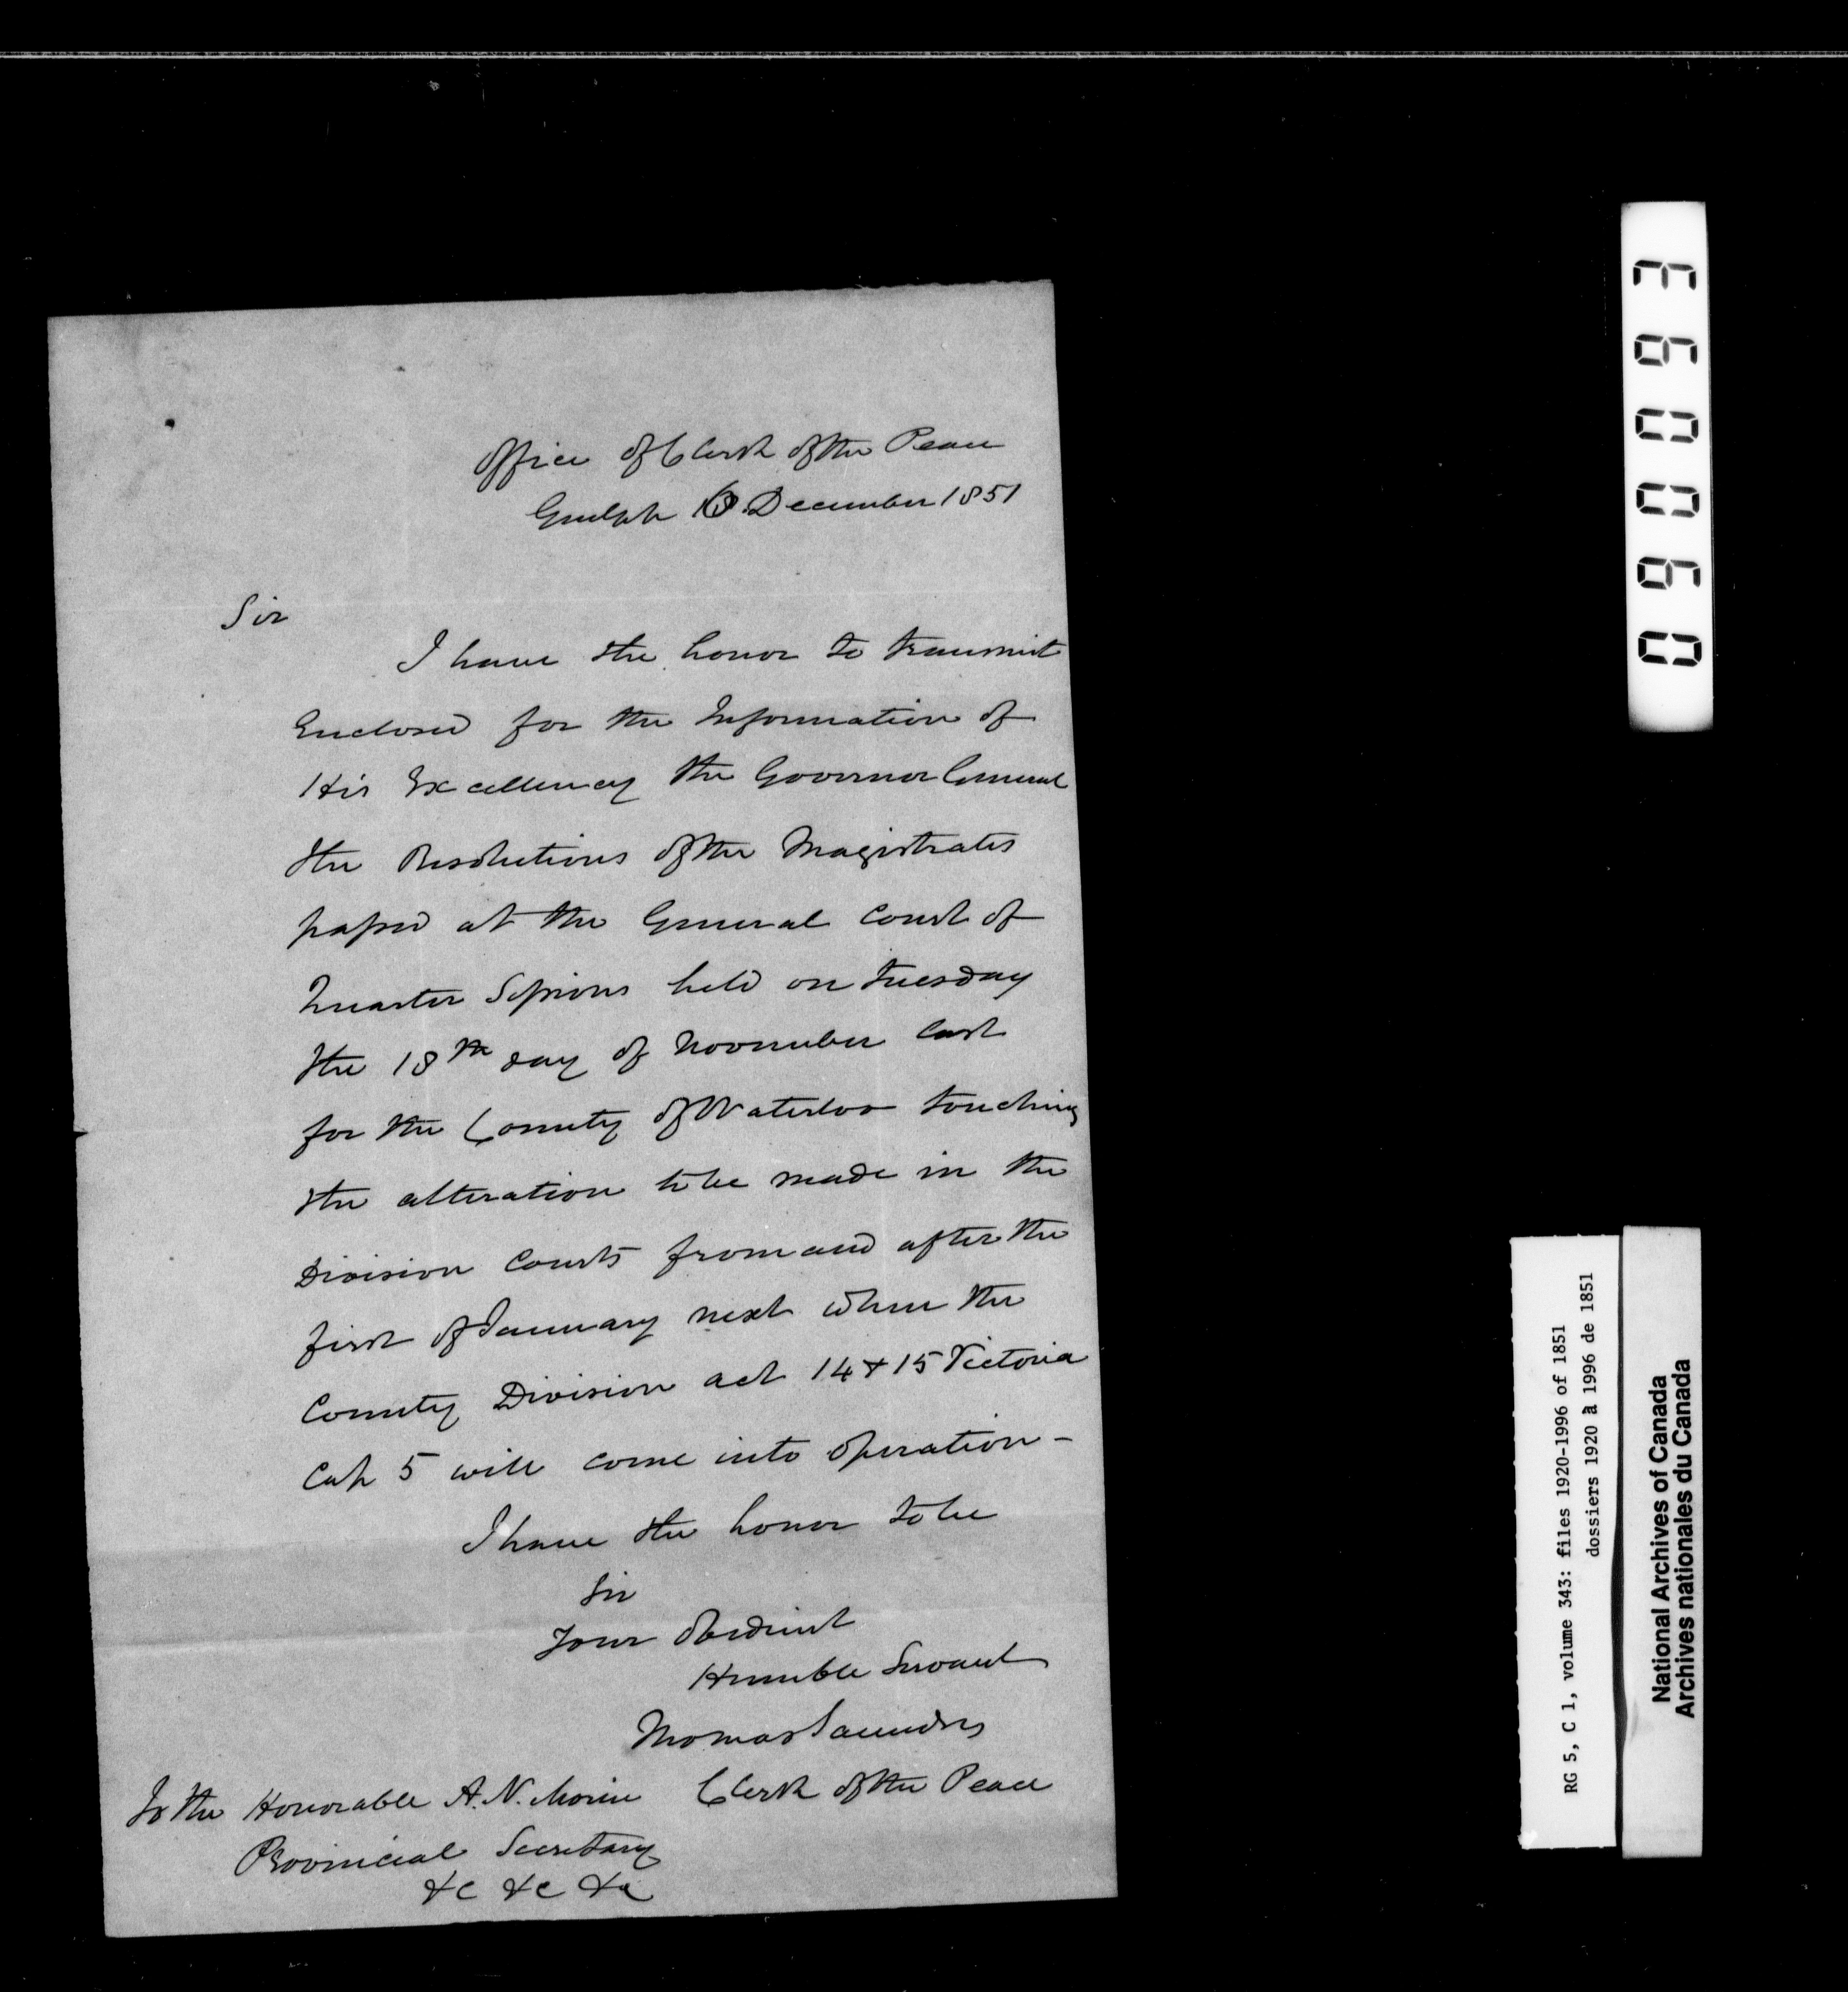 Office of Clerk of the Peace
Guelph December 1851
Sir
I have the honor to transmit
Enclosed for the Information of
His Excellency the Governor General
the Resolutions of the Magistrates
passed at the General Court of
Quarter Sessions held on Tuesday
the 18th day of November last
for the County of Waterloo touching
the alteration to be made in the
Division Courts from and after the
first of January next when the
County Division act 14 & 15 Victoria
Cap 5 will come into operation -
I have the honor to be
Sir
Your Obedient
Humble Servant
Thomas Saunders
Clerk of the Peace
To the Honorable A. N. Morin
Provincial Secretary
&c &c &c
060093
RG 5, C 1, volume 343: files 1920-1996 of 1851
dossiers 1920 à 1996 de 1851
National Archives of Canada
Archives nationales du Canada